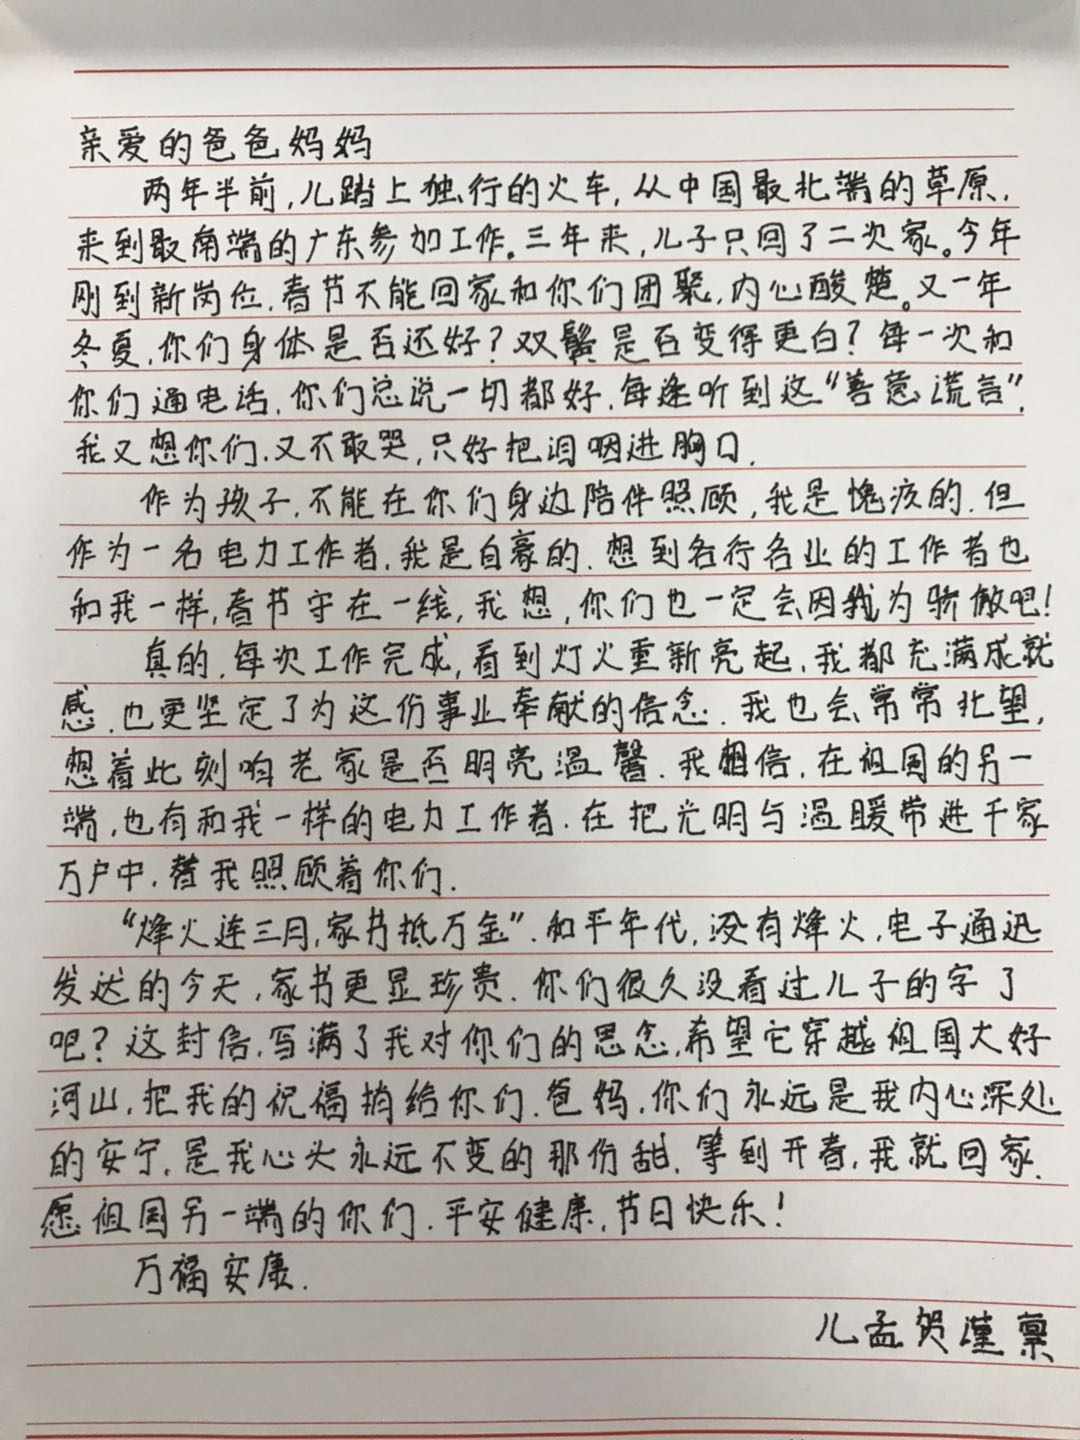 亲爱的爸爸妈妈
两年半前,儿踏上独行的火车,从中国最北端的草原,
来到最南端的广东参加工作。三年来,儿子只回了二次家。今年
刚到新岗位,春节不能回家和你们团聚,内心酸楚。又一年
冬夏,你们身体是否还好?双鬓是否变得更白?每一次和
你们通电话,你们总说一切都好,每逢听到这“善意谎言”,
我又想你们,又不敢哭,只好把泪咽进胸口.
作为孩子,不能在你们身边陪伴照顾,我是愧疚的.但
作为一名电力工作者,我是自豪的.想到各行各业的工作者也
和我一样,春节守在一线,我想,你们也一定会因我为骄傲吧!
真的,每次工作完成,看到灯火重新亮起,我都充满成就
感.也更坚定了为这份事业奉献的信念.我也会常常北望,
想着此刻咱老家是否明亮温馨.我相信,在祖国的另一
端,也有和我一样的电力工作者.在把光明与温暖带进千家
万户中,替我照顾着你们.
“烽火连三月,家书抵万金”.和平年代,没有烽火,电子通迅
发达的今天,家书更显珍贵.你们很久没看过儿子的字了
吧?这封信,写满了我对你们的思念,希望它穿越祖国大好
河山,把我的祝福捎给你们.爸妈,你们永远是我内心深处
的安宁,是我心头永远不变的那份甜.等到开春,我就回家.
愿祖国另一端的你们.平安健康,节日快乐!
万福安康.
儿孟贺谨禀